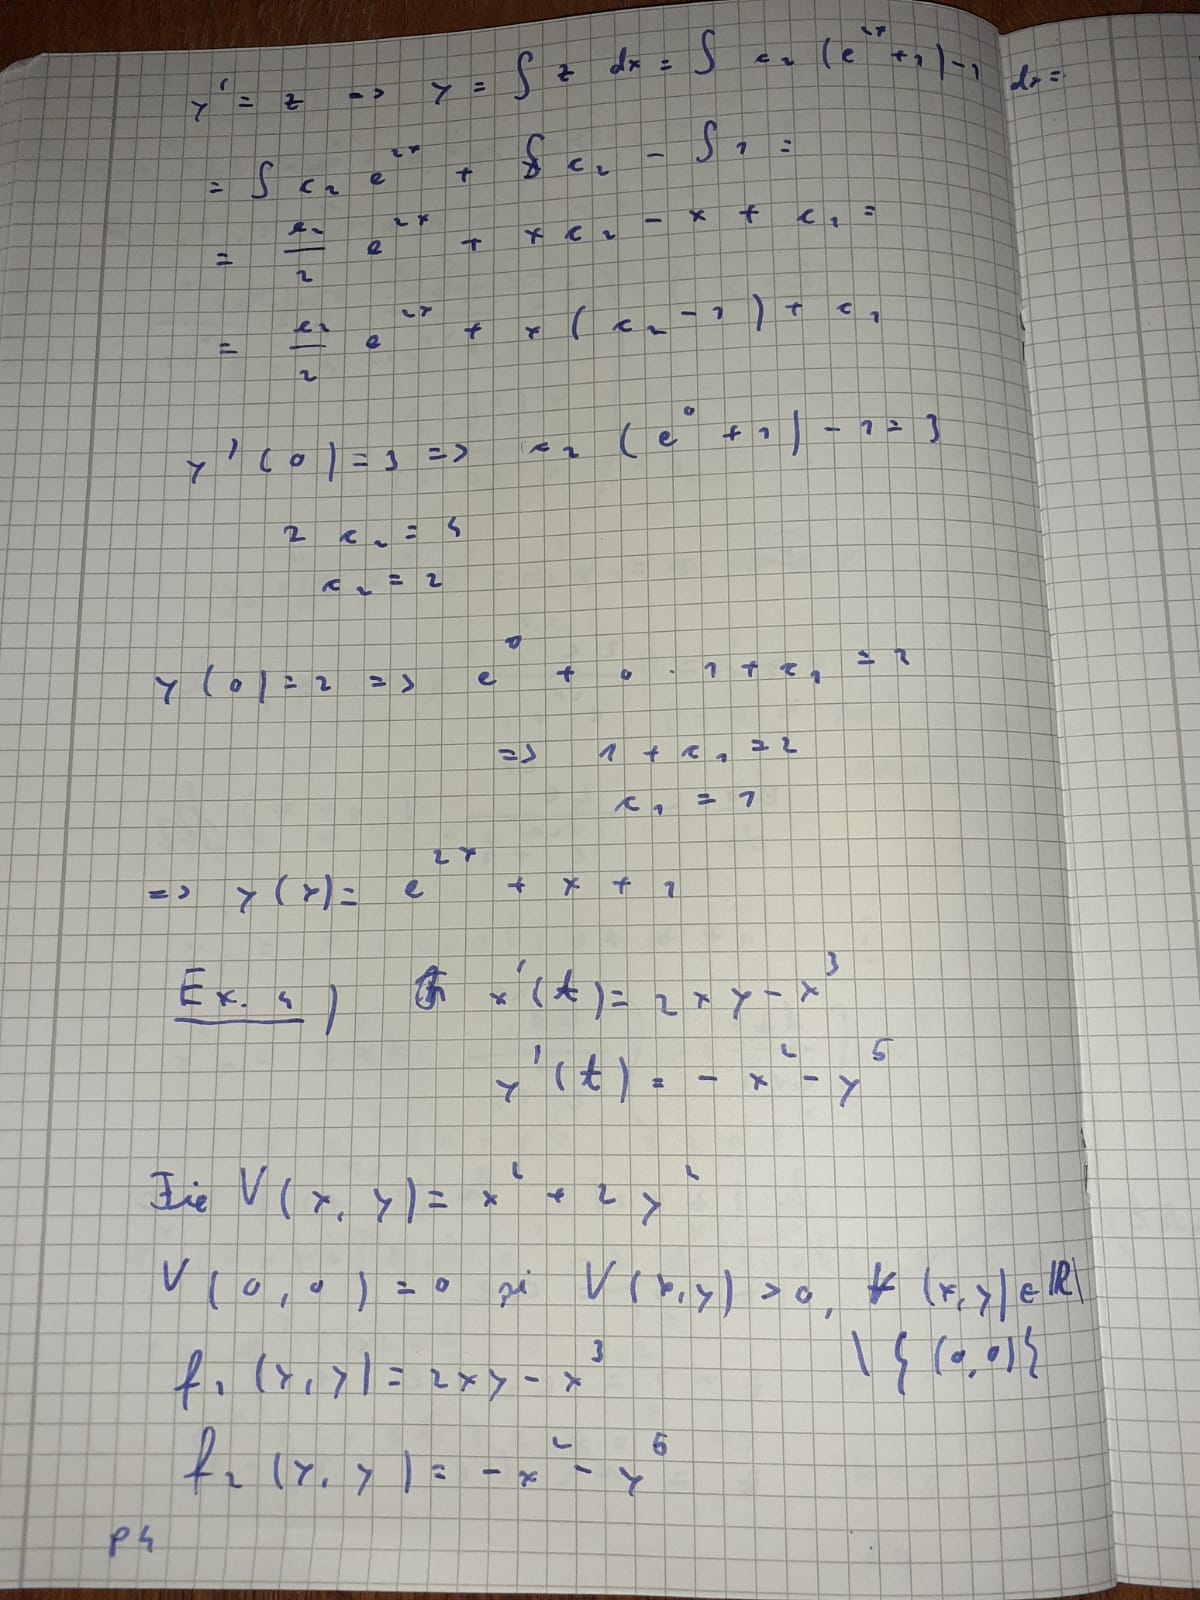 y' = z => y = ∫ z dx = ∫ c₂ (e²ˣ + 1) - 1 dx =
= ∫ c₂ e²ˣ + ∫ c₂ - ∫ 1 =
= c₂/2 e²ˣ + x c₂ - x + c₁ =
= c₂/2 e²ˣ + x (c₂ - 1) + c₁
y'(0) = 3 => c₂ (e⁰ + 1) - 1 = 3
2 c₂ = 4
c₂ = 2
y(0) = 2 => e⁰ + 0 · 1 + c₁ = 2
=> 1 + c₁ = 2
c₁ = 1
=> y(x) = e²ˣ + x + 1
Ex. 4) x'(t) = 2xy - x³
y'(t) = - x² - y⁵
Fie V(x, y) = x² + 2y²
V(0, 0) = 0 și V(x, y) > 0, ∀ (x, y) ∈ ℝ \
\ {(0, 0)}
f₁(x, y) = 2xy - x³
f₂(x, y) = - x² - y⁵
P4